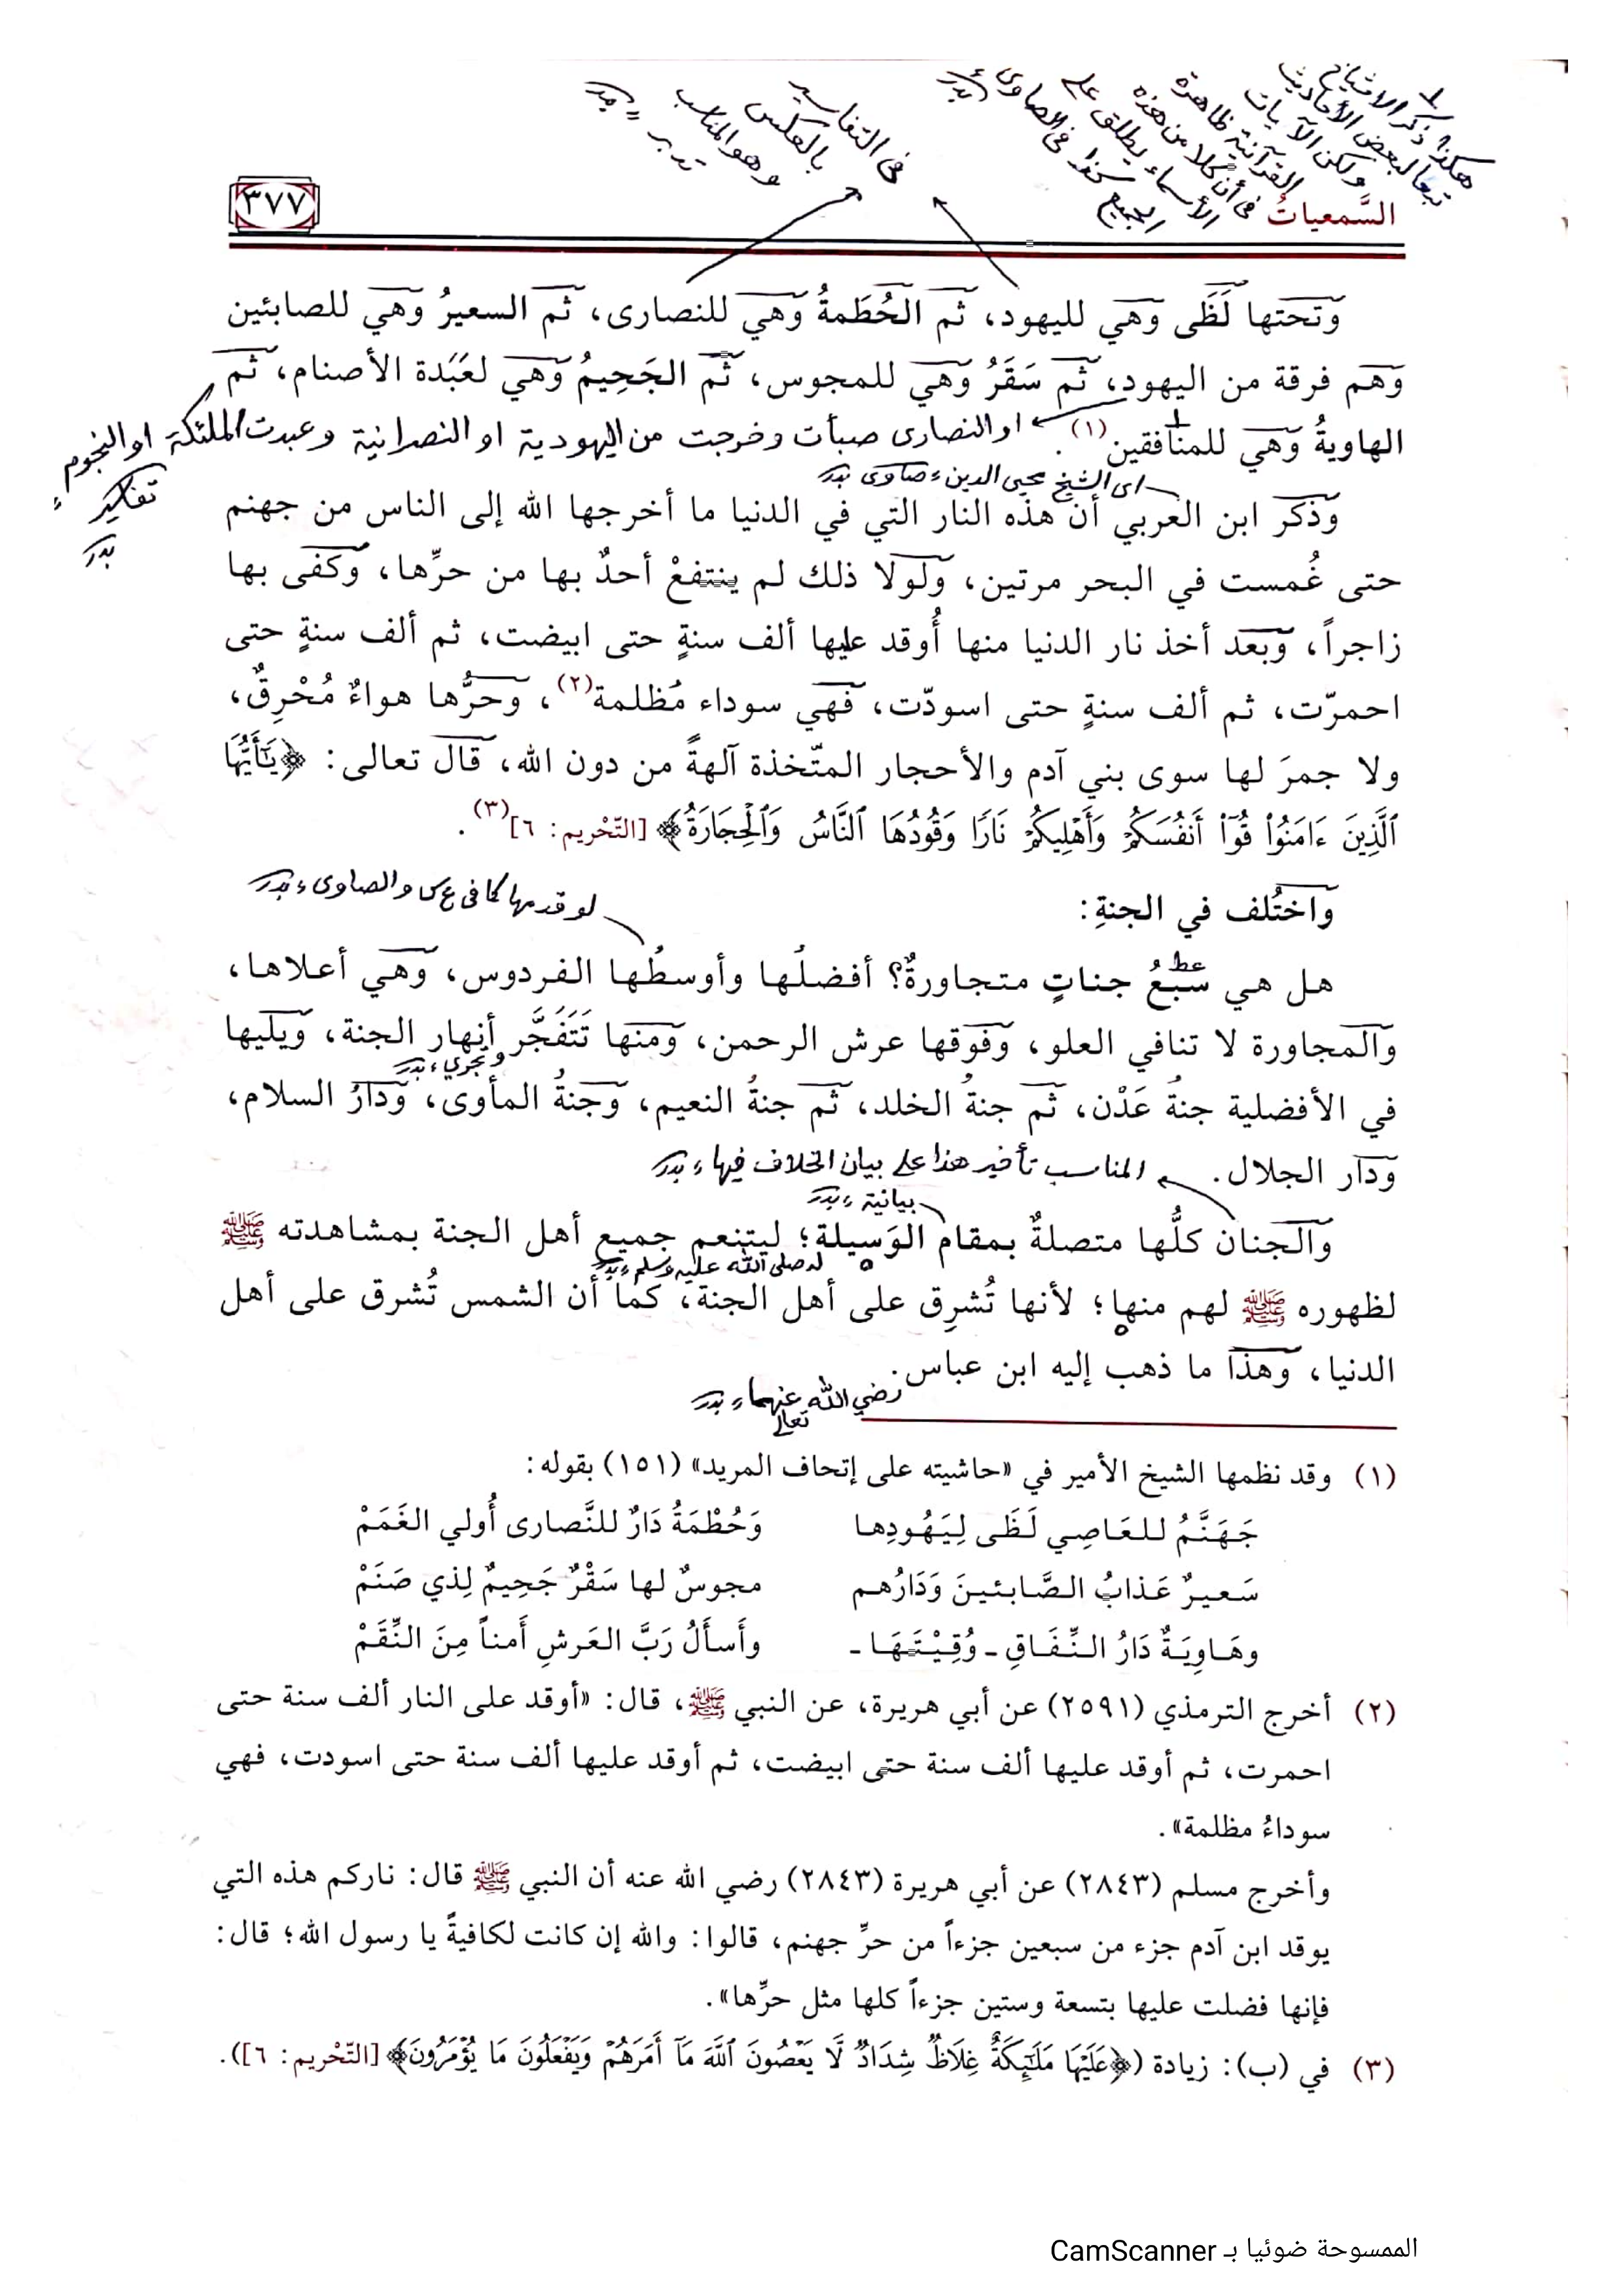 هكذا ذكر الاشياخ
تبعا لبعض الأحاديث
ولكن الآيات
القرآنية ظاهرة
في أن كلا من هذه
الأسماء يطلق على
الجميع كذا في الصاوى
بدر
فى التفاسير
بالعكس
وهو المناسب
تدبر
بدر
السَّمعياتُ
٣٧٧
وتحتها لَظَى وهي لليهود، ثم الحُطَمةُ وهي للنصارى، ثم السعيرُ وهي للصابئين
وهم فرقة من اليهود، ثم سَقَرُ وهي للمجوس، ثم الجَحِيمُ وهي لعَبَدة الأصنام، ثم
الهاويةُ وهي للمنافقين(١).
او النصارى صبأت وخرجت من اليهودية او النصرانية وعبدت الملئكة او النجوم
بدر
اى الشيخ محيى الدين، صاوى بدر
وذكر ابن العربي أن هذه النار التي في الدنيا ما أخرجها الله إلى الناس من جهنم
حتى غُمست في البحر مرتين، ولولا ذلك لم ينتفعْ أحدٌ بها من حرِّها، وكفى بها
زاجراً، وبعد أخذ نار الدنيا منها أُوقد عليها ألف سنةٍ حتى ابيضت، ثم ألف سنةٍ حتى
احمرّت، ثم ألف سنةٍ حتى اسودّت، فهي سوداء مُظلمة(٢)، وحرُّها هواءٌ مُحْرِقٌ،
ولا جمرَ لها سوى بني آدم والأحجار المتّخذة آلهةً من دون الله، قال تعالى: ﴿يَٰٓأَيُّهَا
ٱلَّذِينَ ءَامَنُوا۟ قُوٓا۟ أَنفُسَكُمْ وَأَهْلِيكُمْ نَارًا وَقُودُهَا ٱلنَّاسُ وَٱلْحِجَارَةُ﴾ [التّحْريم: ٦](٣).
لو قدمها كما فى ع س والصاوى، بدر
واختُلف في الجنةِ:
هل هي سَبْعُ جناتٍ متجاورةٌ؟ أفضلُها وأوسطُها الفردوس، وهي أعلاها،
والمجاورة لا تنافي العلو، وفوقها عرش الرحمن، ومنها تَتَفَجَّر أنهار الجنة، ويليها
وتجري، بدر
في الأفضلية جنةُ عَدْن، ثم جنةُ الخلد، ثم جنةُ النعيم، وجنةُ المأوى، ودارُ السلام،
ودار الجلال.
المناسب تأخير هذا على بيان الخلاف فيها، بدر
بيانية، بدر
والجنان كلُّها متصلةٌ بمقام الوَسِيلة؛ ليتنعم جميع أهل الجنة بمشاهدته ﷺ
له صلى الله عليه وسلم، بدر
لظهوره ﷺ لهم منها؛ لأنها تُشرِق على أهل الجنة، كما أن الشمس تُشرق على أهل
الدنيا، وهذا ما ذهب إليه ابن عباس.
رضي الله تعالى عنهما، بدر
(١) وقد نظمها الشيخ الأمير في «حاشيته على إتحاف المريد» (١٥١) بقوله:
جَهَنَّمُ للعَاصِي لَظَى لِيَهُودِها وَحُطْمَةُ دَارٌ للنَّصارى أُولي الغَمَمْ
سَعيرٌ عَذابُ الصَّابئينَ وَدَارُهم مجوسٌ لها سَقْرٌ جَحِيمٌ لِذي صَنَمْ
وهَاوِيَةٌ دَارُ النِّفَاقِ ـ وُقِيْتَهَا ـ وأَسأَلُ رَبَّ العَرشِ أَمناً مِنَ النِّقَمْ
(٢) أخرج الترمذي (٢٥٩١) عن أبي هريرة، عن النبي ﷺ، قال: «أوقد على النار ألف سنة حتى
احمرت، ثم أوقد عليها ألف سنة حتى ابيضت، ثم أوقد عليها ألف سنة حتى اسودت، فهي
سوداءُ مظلمة».
وأخرج مسلم (٢٨٤٣) عن أبي هريرة (٢٨٤٣) رضي الله عنه أن النبي ﷺ قال: ناركم هذه التي
يوقد ابن آدم جزء من سبعين جزءاً من حرِّ جهنم، قالوا: والله إن كانت لكافيةً يا رسول الله؛ قال:
فإنها فضلت عليها بتسعة وستين جزءاً كلها مثل حرِّها».
(٣) في (ب): زيادة (﴿عَلَيْهَا مَلَٰٓئِكَةٌ غِلَاظٌ شِدَادٌ لَّا يَعْصُونَ ٱللَّهَ مَآ أَمَرَهُمْ وَيَفْعَلُونَ مَا يُؤْمَرُونَ﴾ [التّحْريم: ٦]).
الممسوحة ضوئيا بـ CamScanner